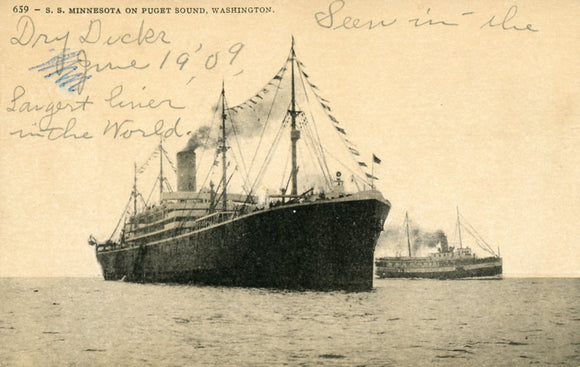 659 - S. S. MINNESOTA ON PUGET SOUND, WASHINGTON.
Seen in the
Dry Docks
June 19, '09,
Largest liner
in the World.